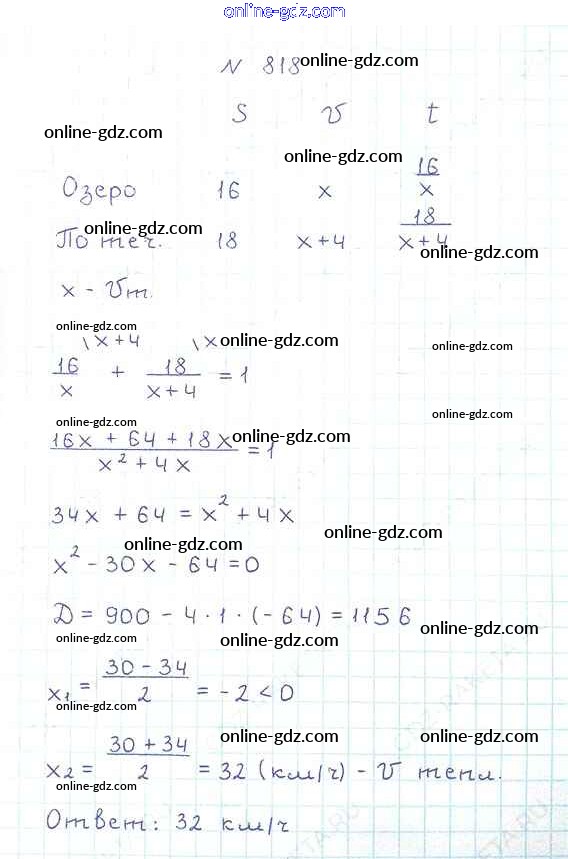 online-gdz.com
N 818 online-gdz.com
S v t
online-gdz.com
online-gdz.com
Озеро 16 x 16/x
online-gdz.com
По теч. 18 x+4 18/(x+4)
online-gdz.com
x - Vт.
online-gdz.com
\x+4 \x online-gdz.com online-gdz.com
16/x + 18/(x+4) = 1
online-gdz.com online-gdz.com
(16x + 64 + 18x)/(x² + 4x) = 1 online-gdz.com
34x + 64 = x² + 4x
online-gdz.com online-gdz.com
x² - 30x - 64 = 0
Д = 900 - 4 · 1 · (-64) = 1156
online-gdz.com online-gdz.com online-gdz.com
x₁ = (30 - 34)/2 = -2 < 0
online-gdz.com
online-gdz.com online-gdz.com
x₂ = (30 + 34)/2 = 32 (км/ч) - v тепл.
online-gdz.com
Ответ: 32 км/ч